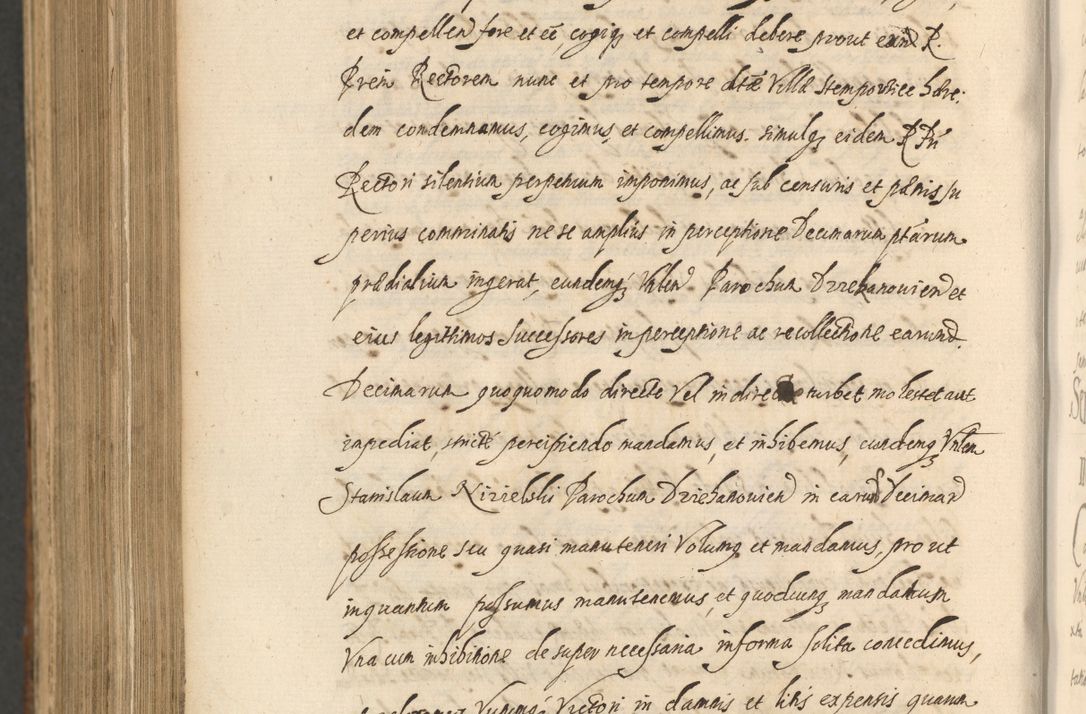 et compellen fore et eē, cogiq; et compelli debere prout eund R.
Prem Rectorem nunc et pro tempore dtæ Villæ Stemportice hære,
dem condemnamus, cogimus, et compellimus. simulq; eidem R Pri
Rectori silentium perpetuum imponimus, ac sub censuris et pænis su
perius comminatis ne se amplius in perceptione Decimarum ptarum
prædialium ingerat, eundemq; Vhlen Parochum Dziekanovien et
eius legitimos successores in perceptione ac recollectione earund.
Decimarum quoquomodo directe Vel indirecte turbet molestet aut
impediat, stricte percipiendo mandamus, et inhibemus, eundemq; Vnlem
Stanislaum Kizielski Parochum Dziekanovien in earund Decimar
possessione seu quasi manuteneri Volumq et mandamus, prout
inquantum possumus manutenemus, et quodcunq; mandatum
Vna cum inhibitione desuper necessaria in forma solita concedimus,
Victori in damnis et litis expensis quarum